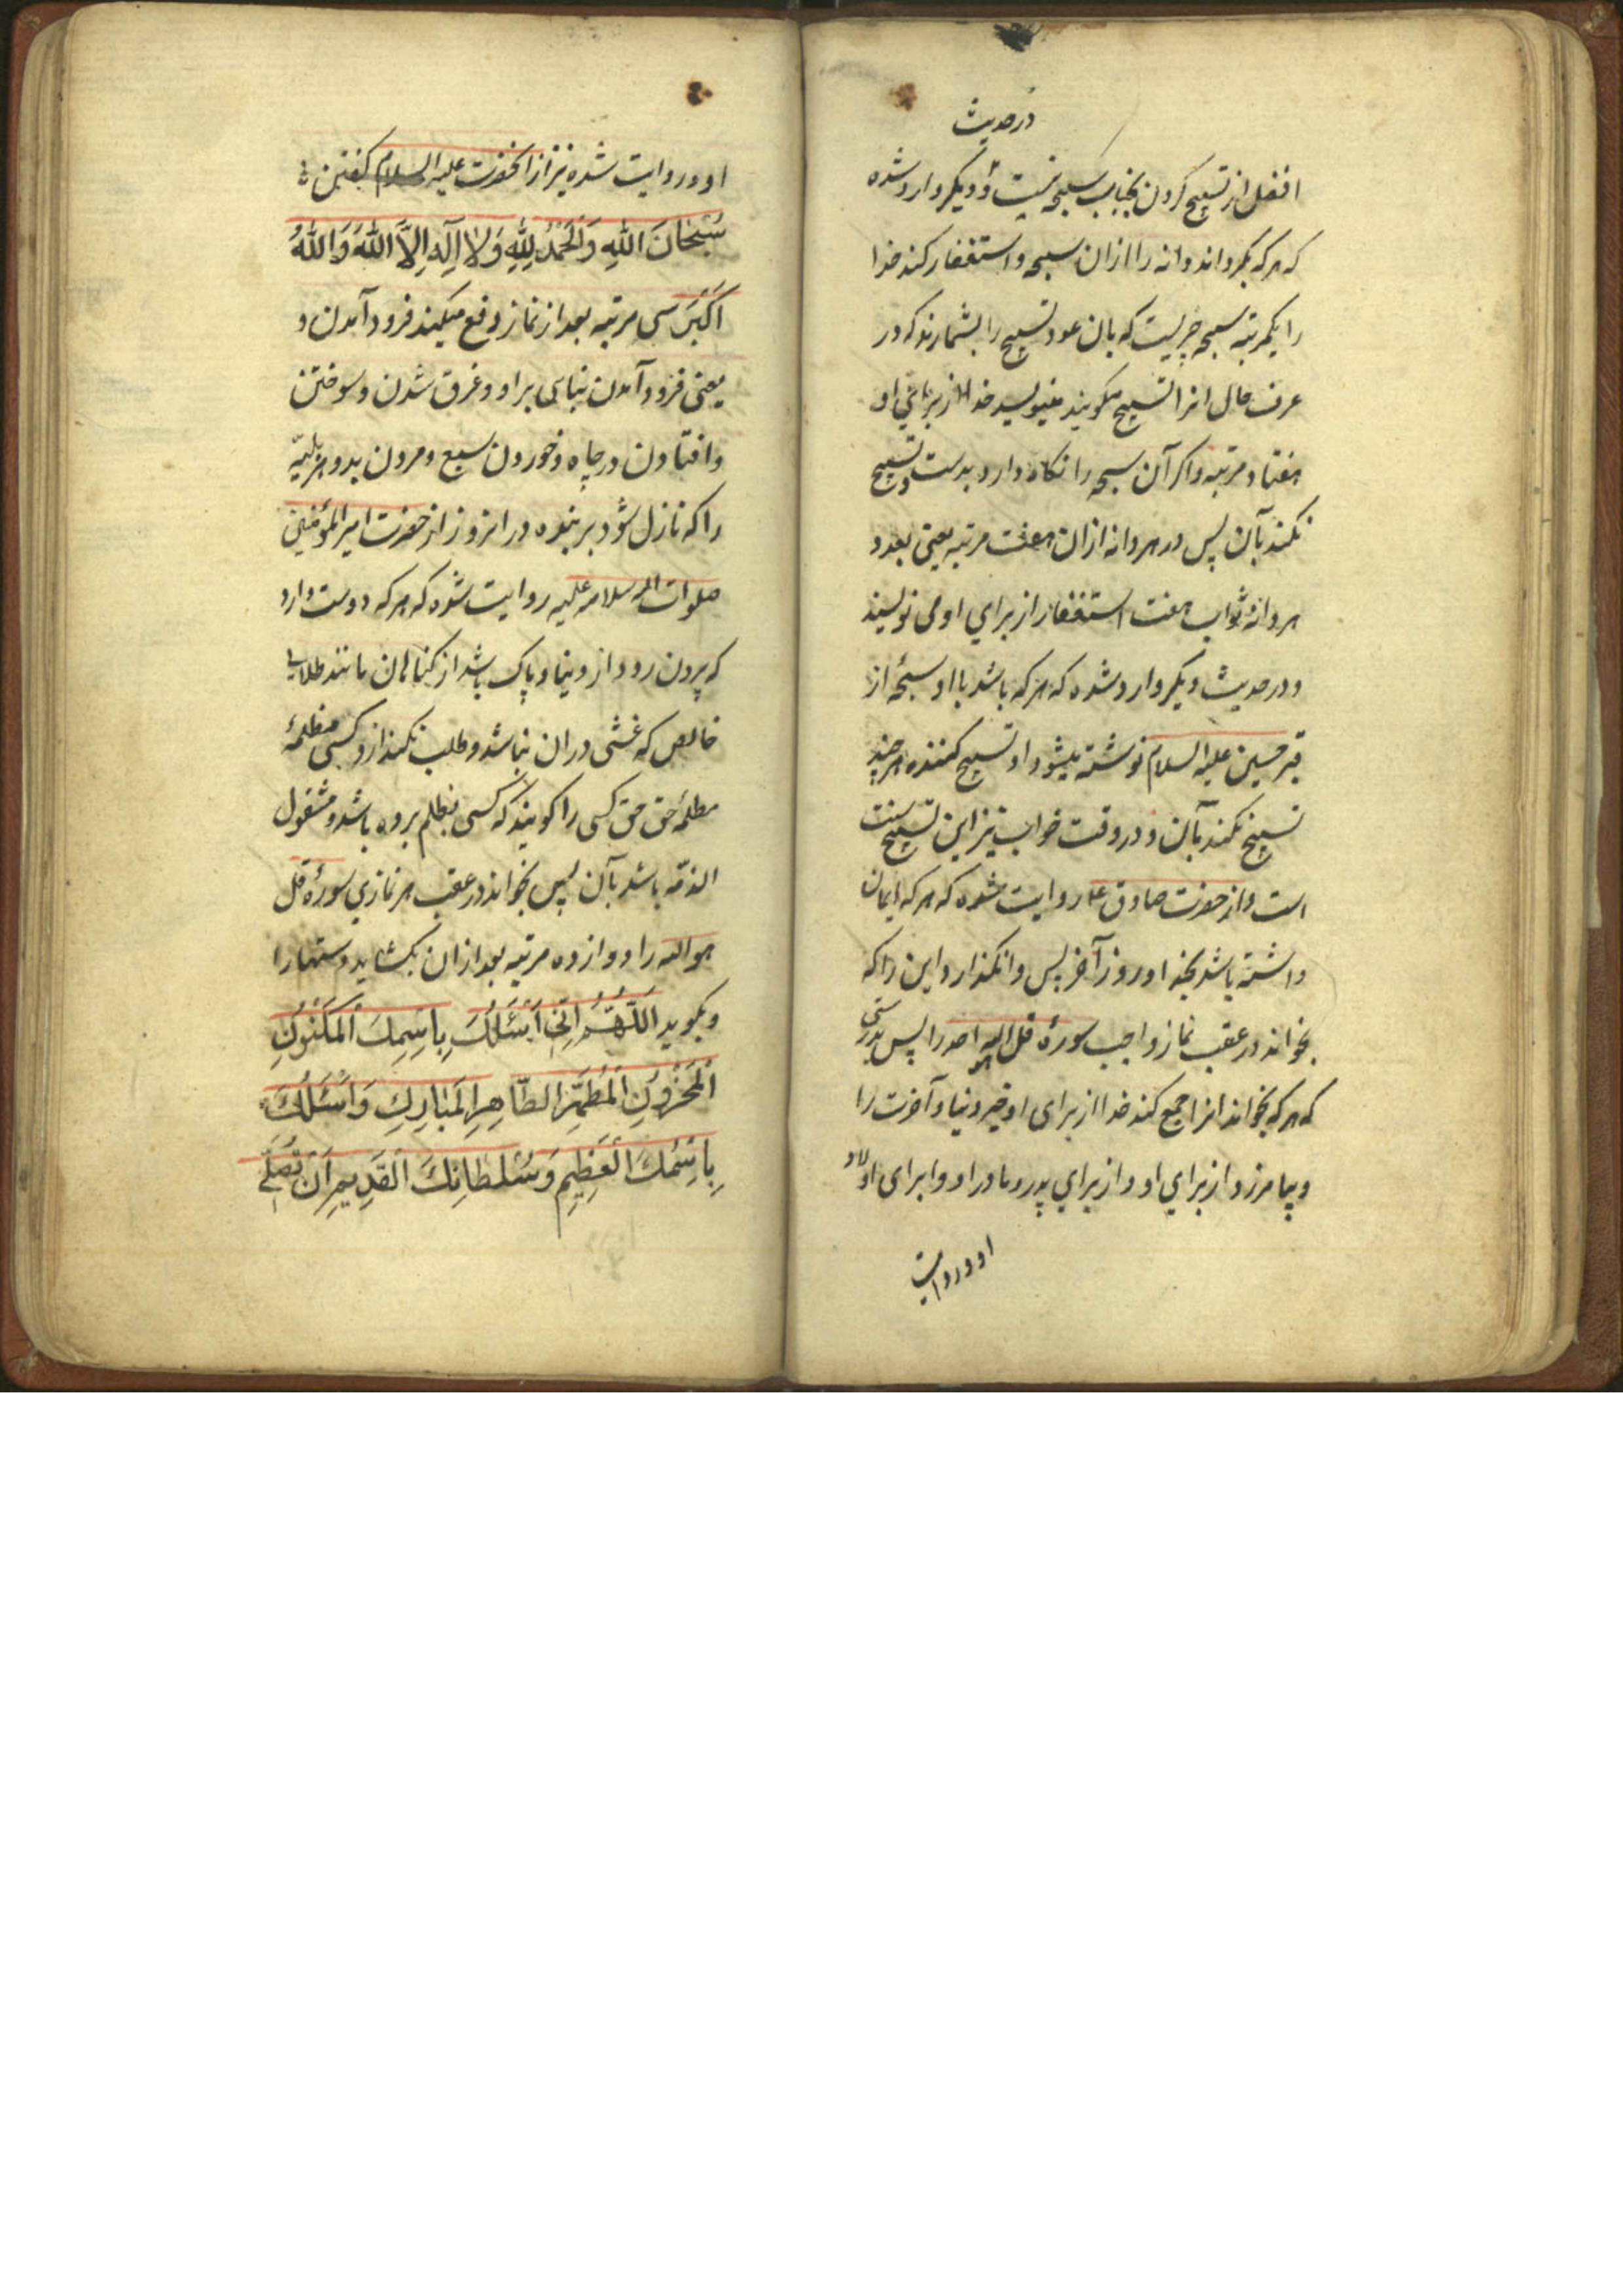 در حدیث
افضل از تسبیح کردن بخباب سبحه نیست و دیکر وارد شده
که هر که بکرداند دانه را ازان سبحه و استغفار کند خدا
را یکمرتبه سبحه چیزیست که بان عود تسبیح را بشمارند که در
عرف حال انرا تسبیح میکویند بنویسد خدا از برای او
هفتاد مرتبه و اکر آن سبحه را نکاه دارد بدست و تسبیح
نکند بآن پس در هر دانه ازان هفت مرتبه یعنی بعدد
هر دانهٔ ثواب هفت استغفار از برای او می نویسند
و در حدیث دیکر وارد شده که هر که باشد با او سبحهٔ از
قبر حسین علیه السلام نوشته میشود او تسبیح کننده هر چند
تسبیح نکند بآن و در وقت خواب نیز این تسبیح سنت
است و از حضرت صادق ع روایت شده که هر که ایمان
داشته باشد بخدا و روز آخر پس وانکذارد این را که
بخواند در عقب نماز واجب سورهٔ قل هو الله احد را پس بدرستی
که هر که بخواند انرا جمع کند خدا از برای او خیر دنیا و آخرت را
و بیامرزد از برای او و از برای پدر و مادر او و ابرای اولاد
او و روایت
او و روایت شده نیز از انحضرت علیه السلام کفتن
سُبْحٰانَ اللّٰهِ وَالْحَمْدُ لِلّٰهِ وَلاٰ اِلٓهَ اِلاَّ اللّٰهُ وَاللّٰهُ
اَکْبَرُ سی مرتبه بعد از نماز دفع میکند فرود آمدن و
یعنی فرود آمدن بنایی بر او و غرق شدن و سوختن
و افتادن در چاه و خوردن سبع و مردن بد و هر بلیّه
را که نازل شود بر بنده در انروز از حضرت امیر المؤمنین
صلوات الله و سلامه علیه روایت شده که هر که دوست دارد
که بیرون رود از دنیا و پاک باشد از کناهان مانند طلای
خالص که غشی در ان نباشد و طلب نکند ازو کسی مظلمهٔ
مظلمهٔ حق حق کسی را کویند که کسی بظلم برده باشد و مشغول
الذمّه باشد بآن پس بخواند در عقب هر نمازی سورهٔ قل
هو الله را دوازده مرتبه بعد ازان بکشاید دستها را
و بکوید اَللّٰهُمَّ اِنّی اَسْئَلُکَ بِاسْمِکَ الْمَکْنُونِ
الْمَخْزُونِ الْمُطَهَّرِ الطّٰاهِرِ الْمُبٰارَکِ وَاَسْئَلُکَ
بِاسْمِکَ الْعَظِیمِ وَسُلْطٰانِکَ الْقَدِیمِ اَنْ تُصَلِّیَ